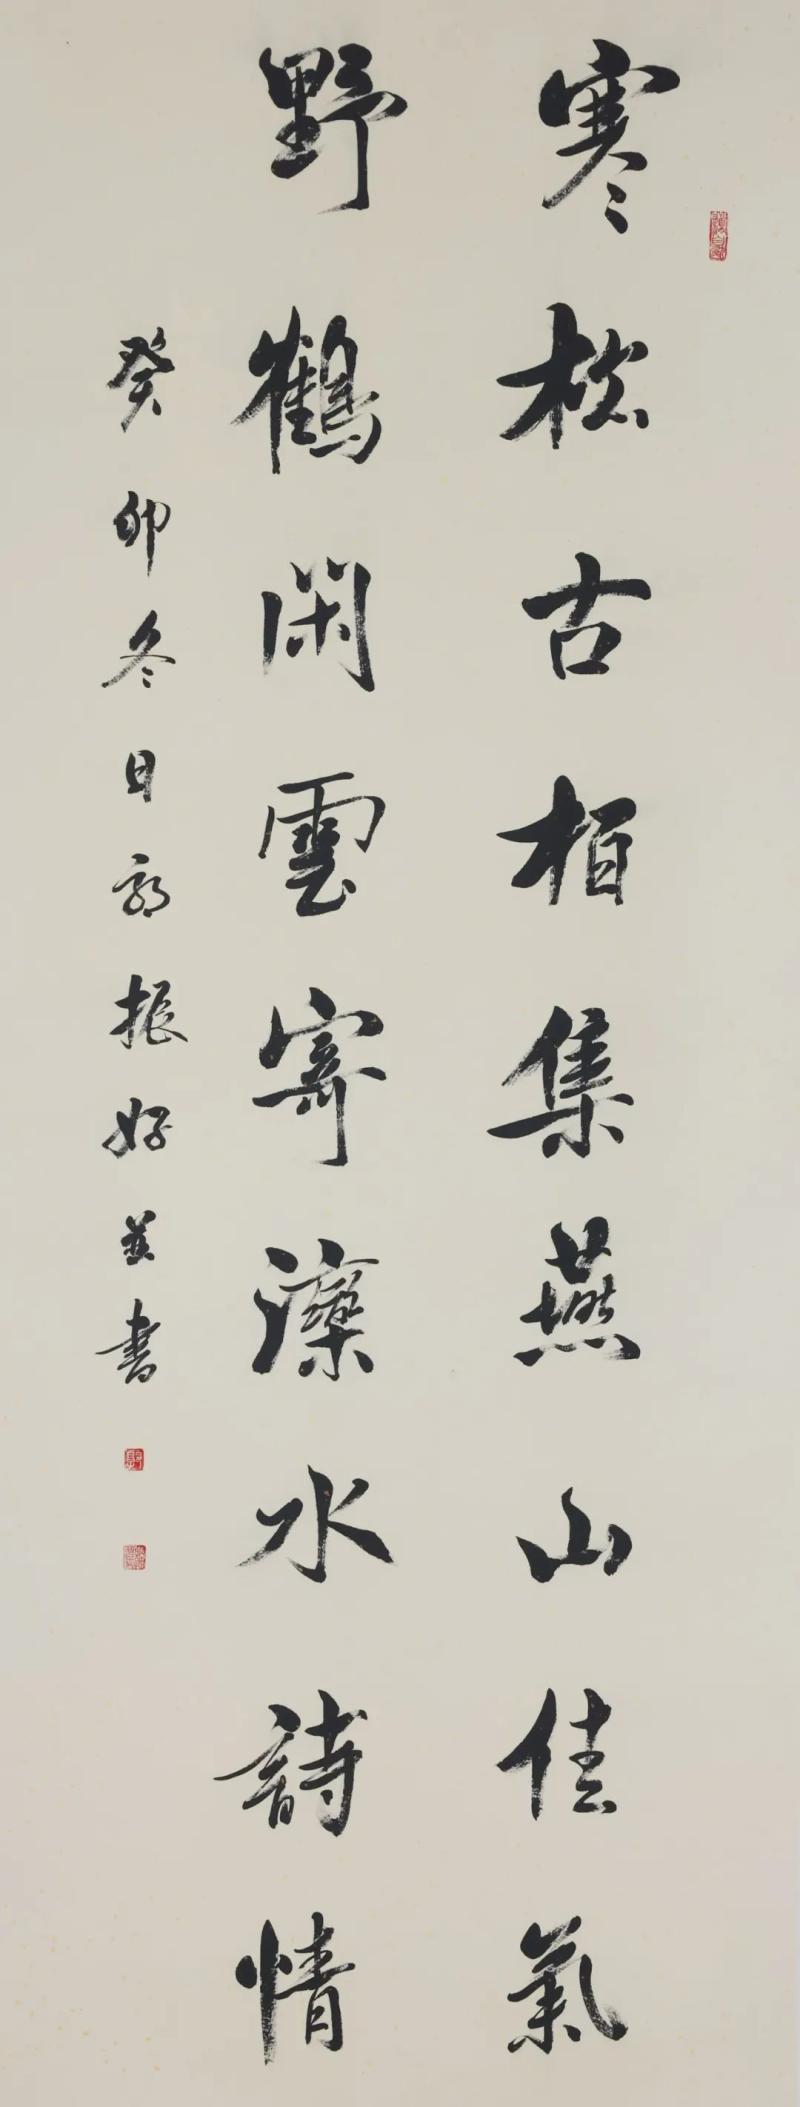 寒松古柏集燕山佳氣
野鶴閑雲寄濼水詩情
癸卯冬日郭振好並書